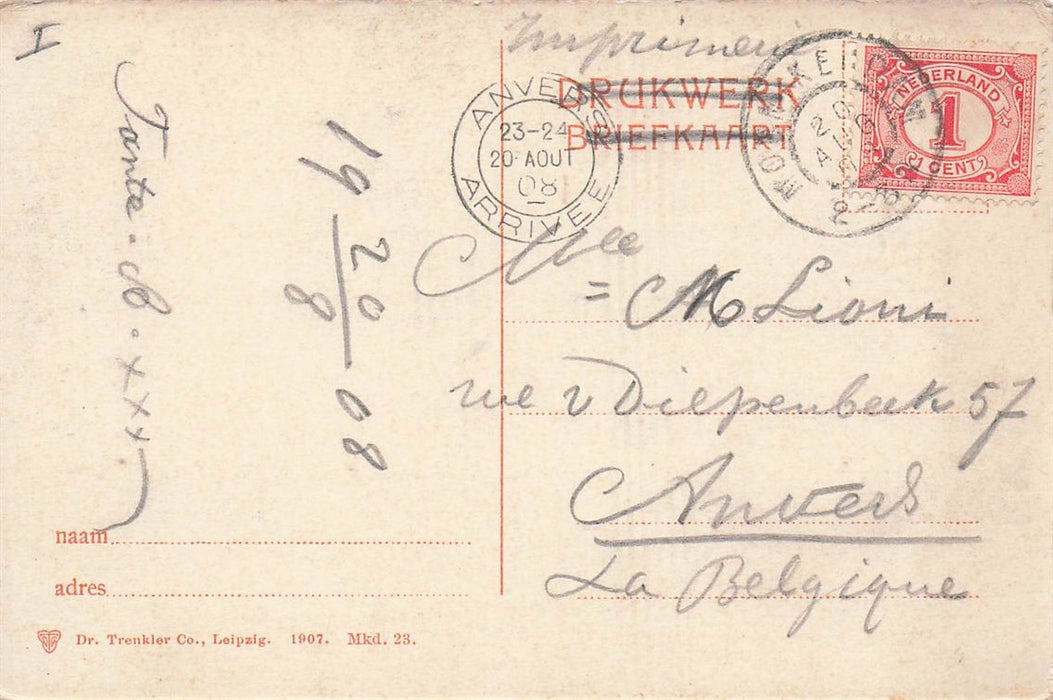 I
Imprimé
DRUKWERK
BRIEFKAART
ANVERS
23-24
20 AOUT
08
ARRIVEE
MONNIKENDAM
NEDERLAND
1
CENT
Mlle
= M Lioni
rue v Diepenbeek 57
Anvers
La Belgique
Tante. xxx
19 20/8 08
naam
adres
Dr. Trenkler Co., Leipzig. 1907. Mkd. 23.